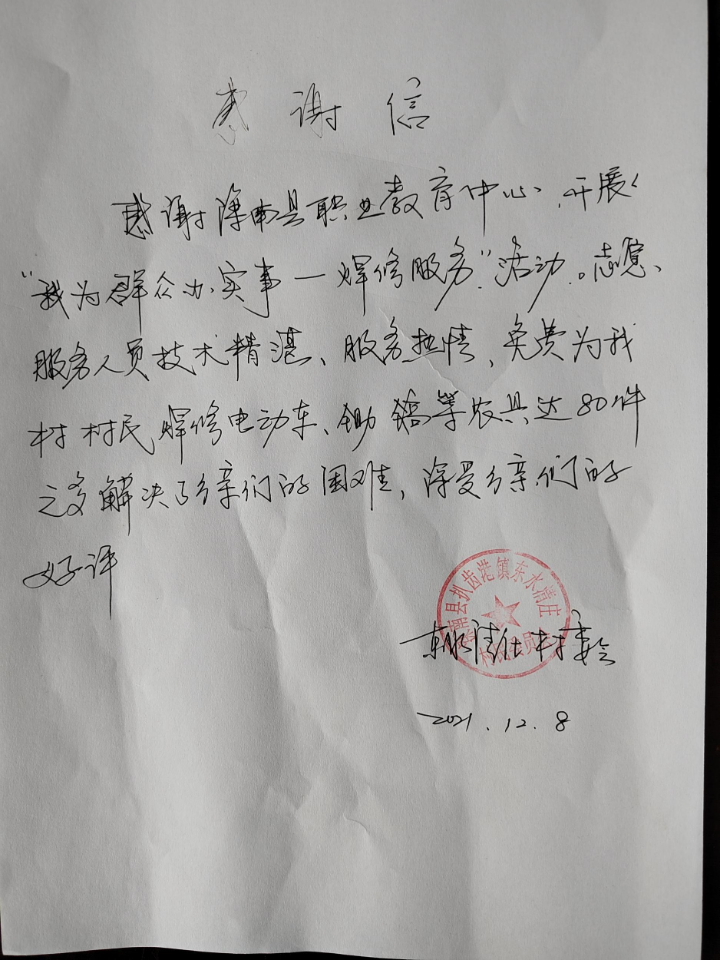 感谢信
感谢滦南县职业教育中心、开展
"我为群众办实事一焊修服务"活动。志愿、
服务人员技术精湛、服务热情，免费为我
村村民焊修电动车、锄镐等农具达80件
之多解决了乡亲们的困难，深受乡亲们的
好评
南县扒齿港镇东水清庄
东水清庄村委会
2021.12.8